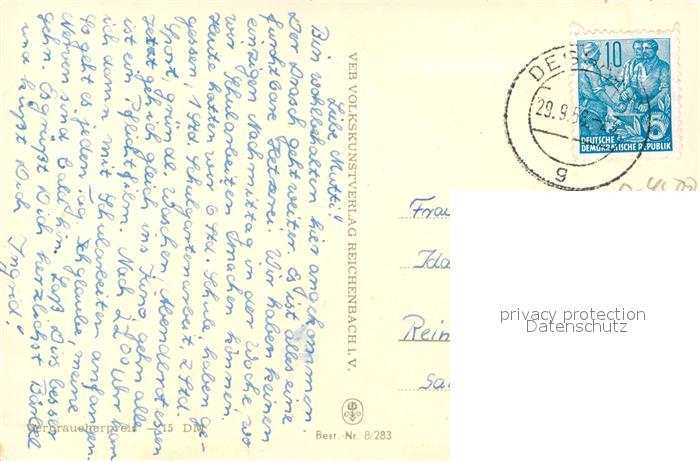 Liebe Mutti!
Bin wohlbehalten hier angekommen.
Der Drasch geht weiter. Es ist alles eine
furchtbare Hetzerei. Wir haben keinen
einzigen Nachmittag in der Woche, wo
wir Schularbeiten machen können.
Heute hatten wir 6 Std. Schule, haben ge-
gessen, 1 Std. Schulgartenarbeit, 2 Std.
Sport, gründl. Waschen, Abendbrot essen
jetzt geh ich gleich ins Kino, gehn alle
ist ein Pflichtfilm. Nach 22.00 Uhr kann
ich dann mit Schularbeiten anfangen.
So geht es jeden Tag. Ich glaube, meine
Nerven sind bald hin. Laß Dirs besser
gehn. Es grüßt Dich herzlichst Bärbel
und küßt Dich Ingrid!
VEB VOLKSKUNSTVERLAG REICHENBACH i. V.
Verbraucherpreis —.15 DM
Best.-Nr. 8/283
10
DEUTSCHE
DEMOKRATISCHE REPUBLIK
DESSAU
29.9.
g
Frau
Ida
Rein
privacy protection
Datenschutz